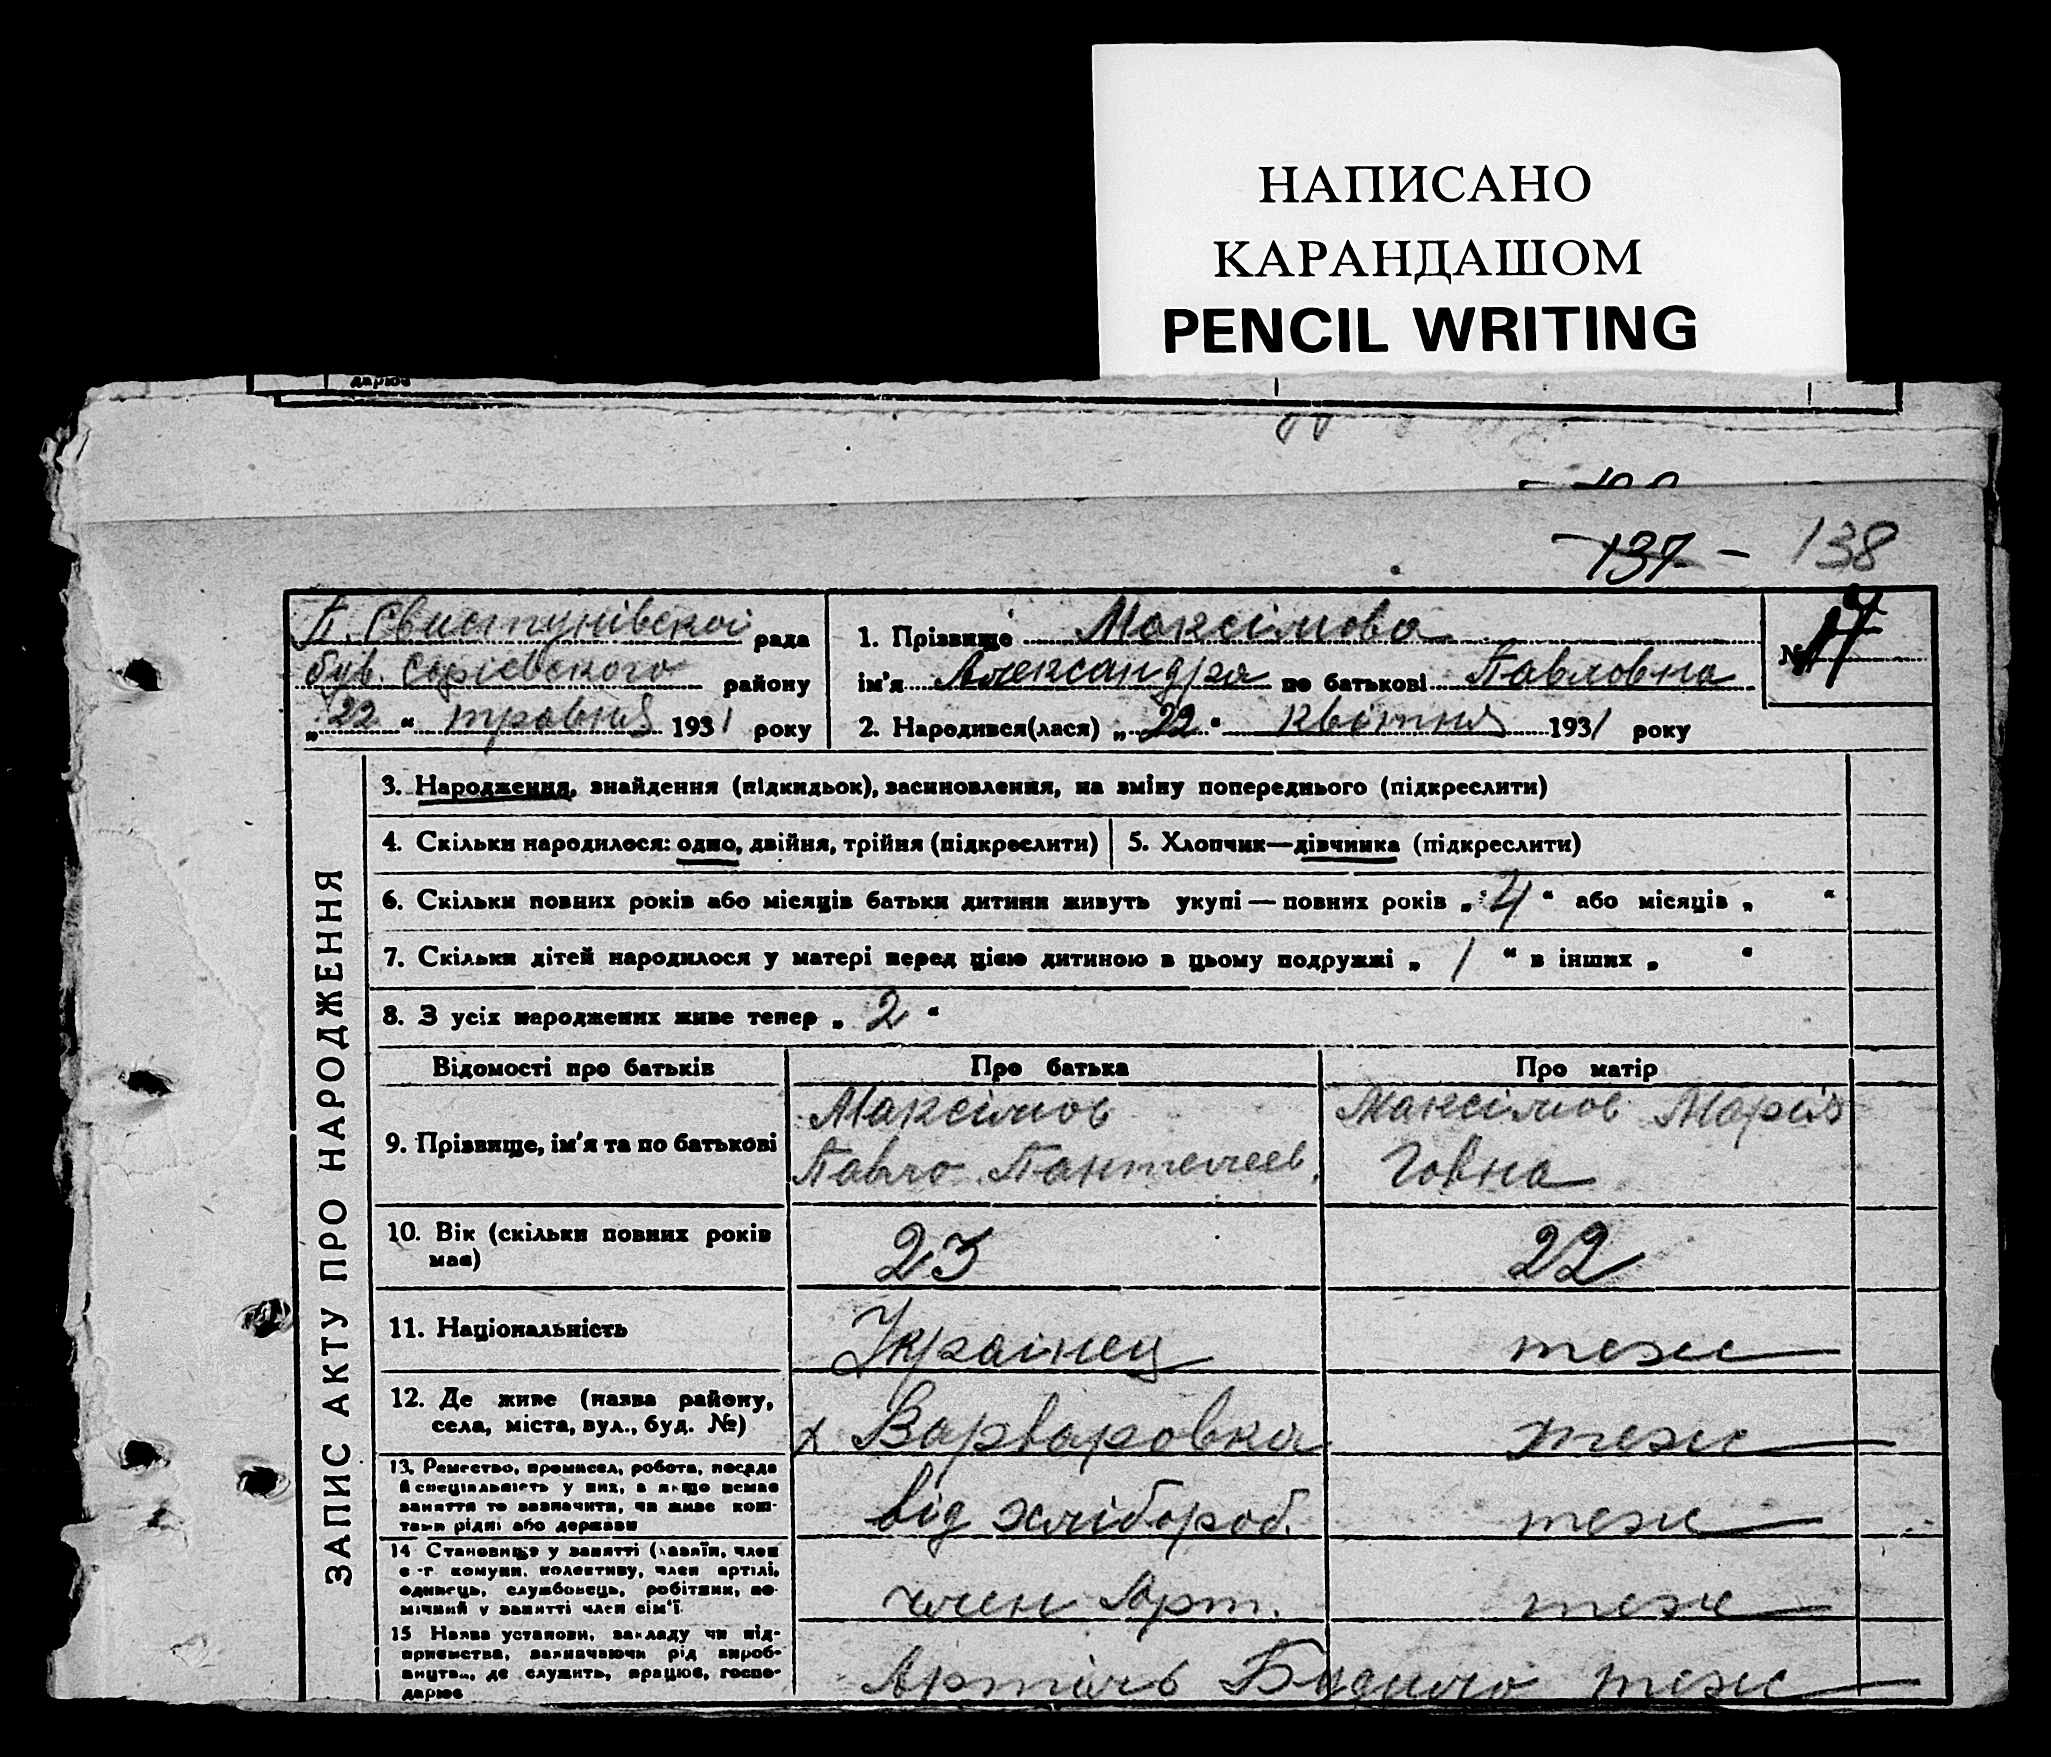 НАПИСАНО
КАРАНДАШОМ
PENCIL WRITING
дарює
-137- 138
П. Свистунівської рада
був. Софієвского району
„22“ травня 1931 року
1. Прізвище Максімова
ім'я Александра по батькові Павловна
2. Народився(лася) „22“ квітня 1931 року
№ 17
ЗАПИС АКТУ ПРО НАРОДЖЕННЯ
3. Народження, знайдення (підкидьок), засиновлення, на зміну попереднього (підкреслити)
4. Скільки народилося: одно, двійня, трійня (підкреслити)
5. Хлопчик—дівчинка (підкреслити)
6. Скільки повних років або місяців батьки дитини живуть укупі — повних років „4“ або місяців „ “
7. Скільки дітей народилося у матері перед цією дитиною в цьому подружжі „1“ в інших „ “
8. З усіх народжених живе тепер „2“
Відомості про батьків
Про батька
Про матір
9. Прізвище, ім'я та по батькові
Максімов
Павло Пантелеев.
Максімов Марія
Говна
10. Вік (скільки повних років
має)
23
22
11. Національність
Українец
теж
12. Де живе (назва району,
села, міста, вул., буд. №)
х Варваровка
теж
13. Ремество, промисел, робота, посада
й спеціяльність у них, а якщо немає
заняття то зазначити, чи живе кош-
тами рідні або держави
від хлібороб.
теж
14 Становище у занятті (хазяїн, член
с.-г. комуни, колективу, член артілі,
одинець, службовець, робітник, по-
мічний у занятті член сім'ї
член Арт.
теж
15 Назва установи, закладу чи під-
приємства, зазначаючи рід вироб-
ництв., де служить, працює, госпо-
дарює
Артіль
теж